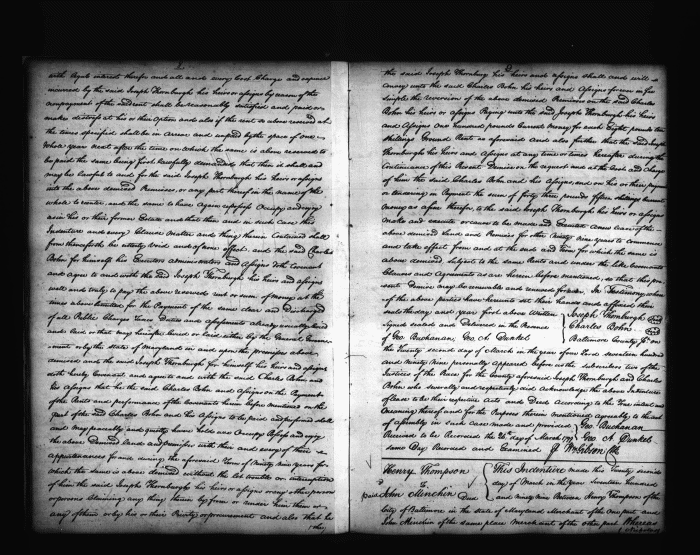 with Legal interest therefor and all and every Cost Charge and expence
incurred by the said Joseph Thornburgh his heirs or assigns by reason of the
nonpayment of the add rent shall be reasonably satisfied and paid or
make distress at his or their option and also if the rent as above reserved at
the times specified shall be in arrear and unpaid by the space of one
Whole year next after the time on which the same is above reserved to
be paid the same being first lawfully demanded that then it shall and
may be lawful to and for the said Joseph Thornburgh his heirs or assigns
into the above demised Premises, or any part thereof in the name of the
whole to reenter and the same to have again repossess Occupy and enjoy
as in his or their former Estate and that then and in such case this
Indenture and every Clause Matter and thing therein Contained shall
from thenceforth be utterly void and of none effect. and the said Charles
Bohn for himself his Executors administrators and assigns doth covenant
and agree to and with the said Joseph Thornburgh his heirs and assigns
well and truly to pay the above reserved rent or sum of money at the
times above limited for the Payment of the same clear and Discharged
of all Public Charges Taxes Duties and assessments already
and laid or that may hereafter be or laid either by the General Govern-
ment or by the State of Maryland in and upon the premises above
demised and the said Joseph Thornburgh for himself his heirs and assigns
doth hereby Covenant and agree to and with the said Charles Bohn and
his Assigns that he the said Charles Bohn and Assigns on the Payment
of the Rents and performance of the Covenants herein before mentioned on the
part of the said Charles Bohn and his Assigns to be paid and performed shall
and may peaceably and quietly have hold use Occupy Possess and enjoy
the above Demised Land and premises with their and every of their
appurtenances for and during the aforesaid Term of Ninety nine years for
which the same is above demised without the let trouble or interruption
of him the said Joseph Thornburgh his heirs or assigns or any other person
or persons Claiming any thing therein by from or under him them or
any of them or by his or their Privity or procurement and also that he
they
the said Joseph Thornburgh his heirs or assigns shall and will
convey unto the said Charles Bohn his heirs and Assigns forever in fee
simple the reversion of the above demised Premises on the said Charles
Bohn his heirs or Assigns Paying unto the said Joseph Thornburgh his Heirs
and Assigns One hundred pounds Current Money for each Eight pounds ten
shillings Ground Rent as aforesaid and also further that the said Joseph
Thornburgh his Heirs and Assigns at any time or times hereafter during the
Continuance of this Present Demise on the request and at the Cost and Charge
of him the said Charles Bohn and his Assigns, and on his or their paying
or tendering in Payment the sum of forty three pounds fifteen shillings Current
money as a fine therefor, to the said Joseph Thornburgh his Heirs or Assigns
make and execute or cause to be made and Executed a new lease of the
above demised Land and Premises for other Ninety nine years to commence
and take effect from and at the end and time for which the same is
above demised subject to the same Rents and under the like Covenants
Clauses and Agreements as are herein before mentioned, so that this pre-
sent Demise may be renewable and renewed for ever. In Testimony whereof
of the above parties have hereunto set their hands and affixed their
seals the day and year first above Written Joseph Thornburgh
Signed Sealed and Delivered in the Presence Charles Bohn
of Geo. Buchanan, Geo. A. Dunkel Baltimore County
the Twenty second day of March in the year of our Lord seventeen hundred
and Ninety Nine personally Appeared before us the subscribers two of the
Justices of the Peace for the County aforesaid Joseph Thornburgh and Charles
Bohn who severally and respectively did Acknowledge the above Indenture
of Lease to be their respective Acts and Deeds According to the True intent and
Meaning thereof and for the Purposes therein mentioned agreeably to the act
of assembly in such case made and provided Geo. Buchanan
Received to be Recorded the 22d day of March 1799 Geo. A. Dunkel
same day Recorded and Examined Wm Gibson Clk
Henry Thompson
to
John Minchin Deed
This Indenture made this Twenty second
day of March in the year Seventeen hundred
and Ninety Nine Between Henry Thompson of the
City of Baltimore in the State of Maryland Merchant of the one part and
John Minchin of the same place merchant of the other part Whereas